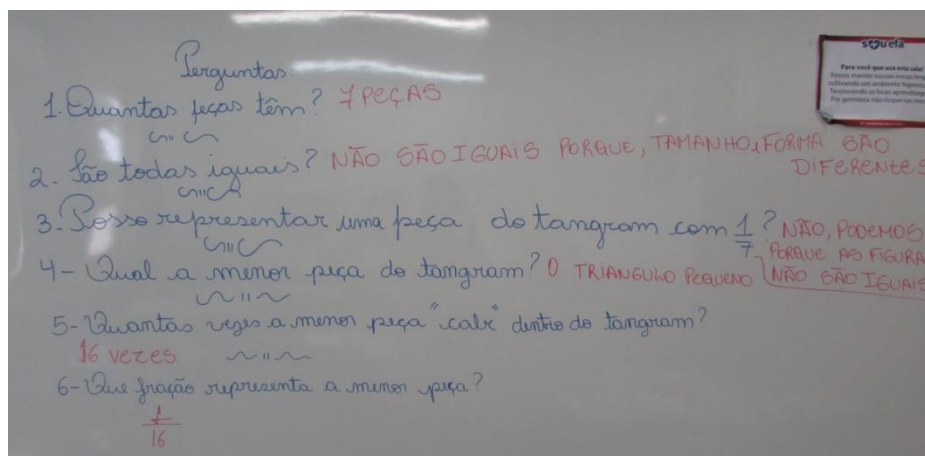 Perguntas:
1. Quantas peças têm? 7 PEÇAS
2. São todas iguais? NÃO SÃO IGUAIS PORQUE, TAMANHO E FORMA SÃO
DIFERENTES
3. Posso representar uma peça do tangram com 1/7? NÃO, PODEMOS
PORQUE AS FIGURA
NÃO SÃO IGUAIS
4- Qual a menor peça do tangram? O TRIANGULO PEQUENO
5- Quantas vezes a menor peça "cabe" dentro do tangram?
16 vezes
6- Que fração representa a menor peça?
1/16
Para você que usa esta sala!